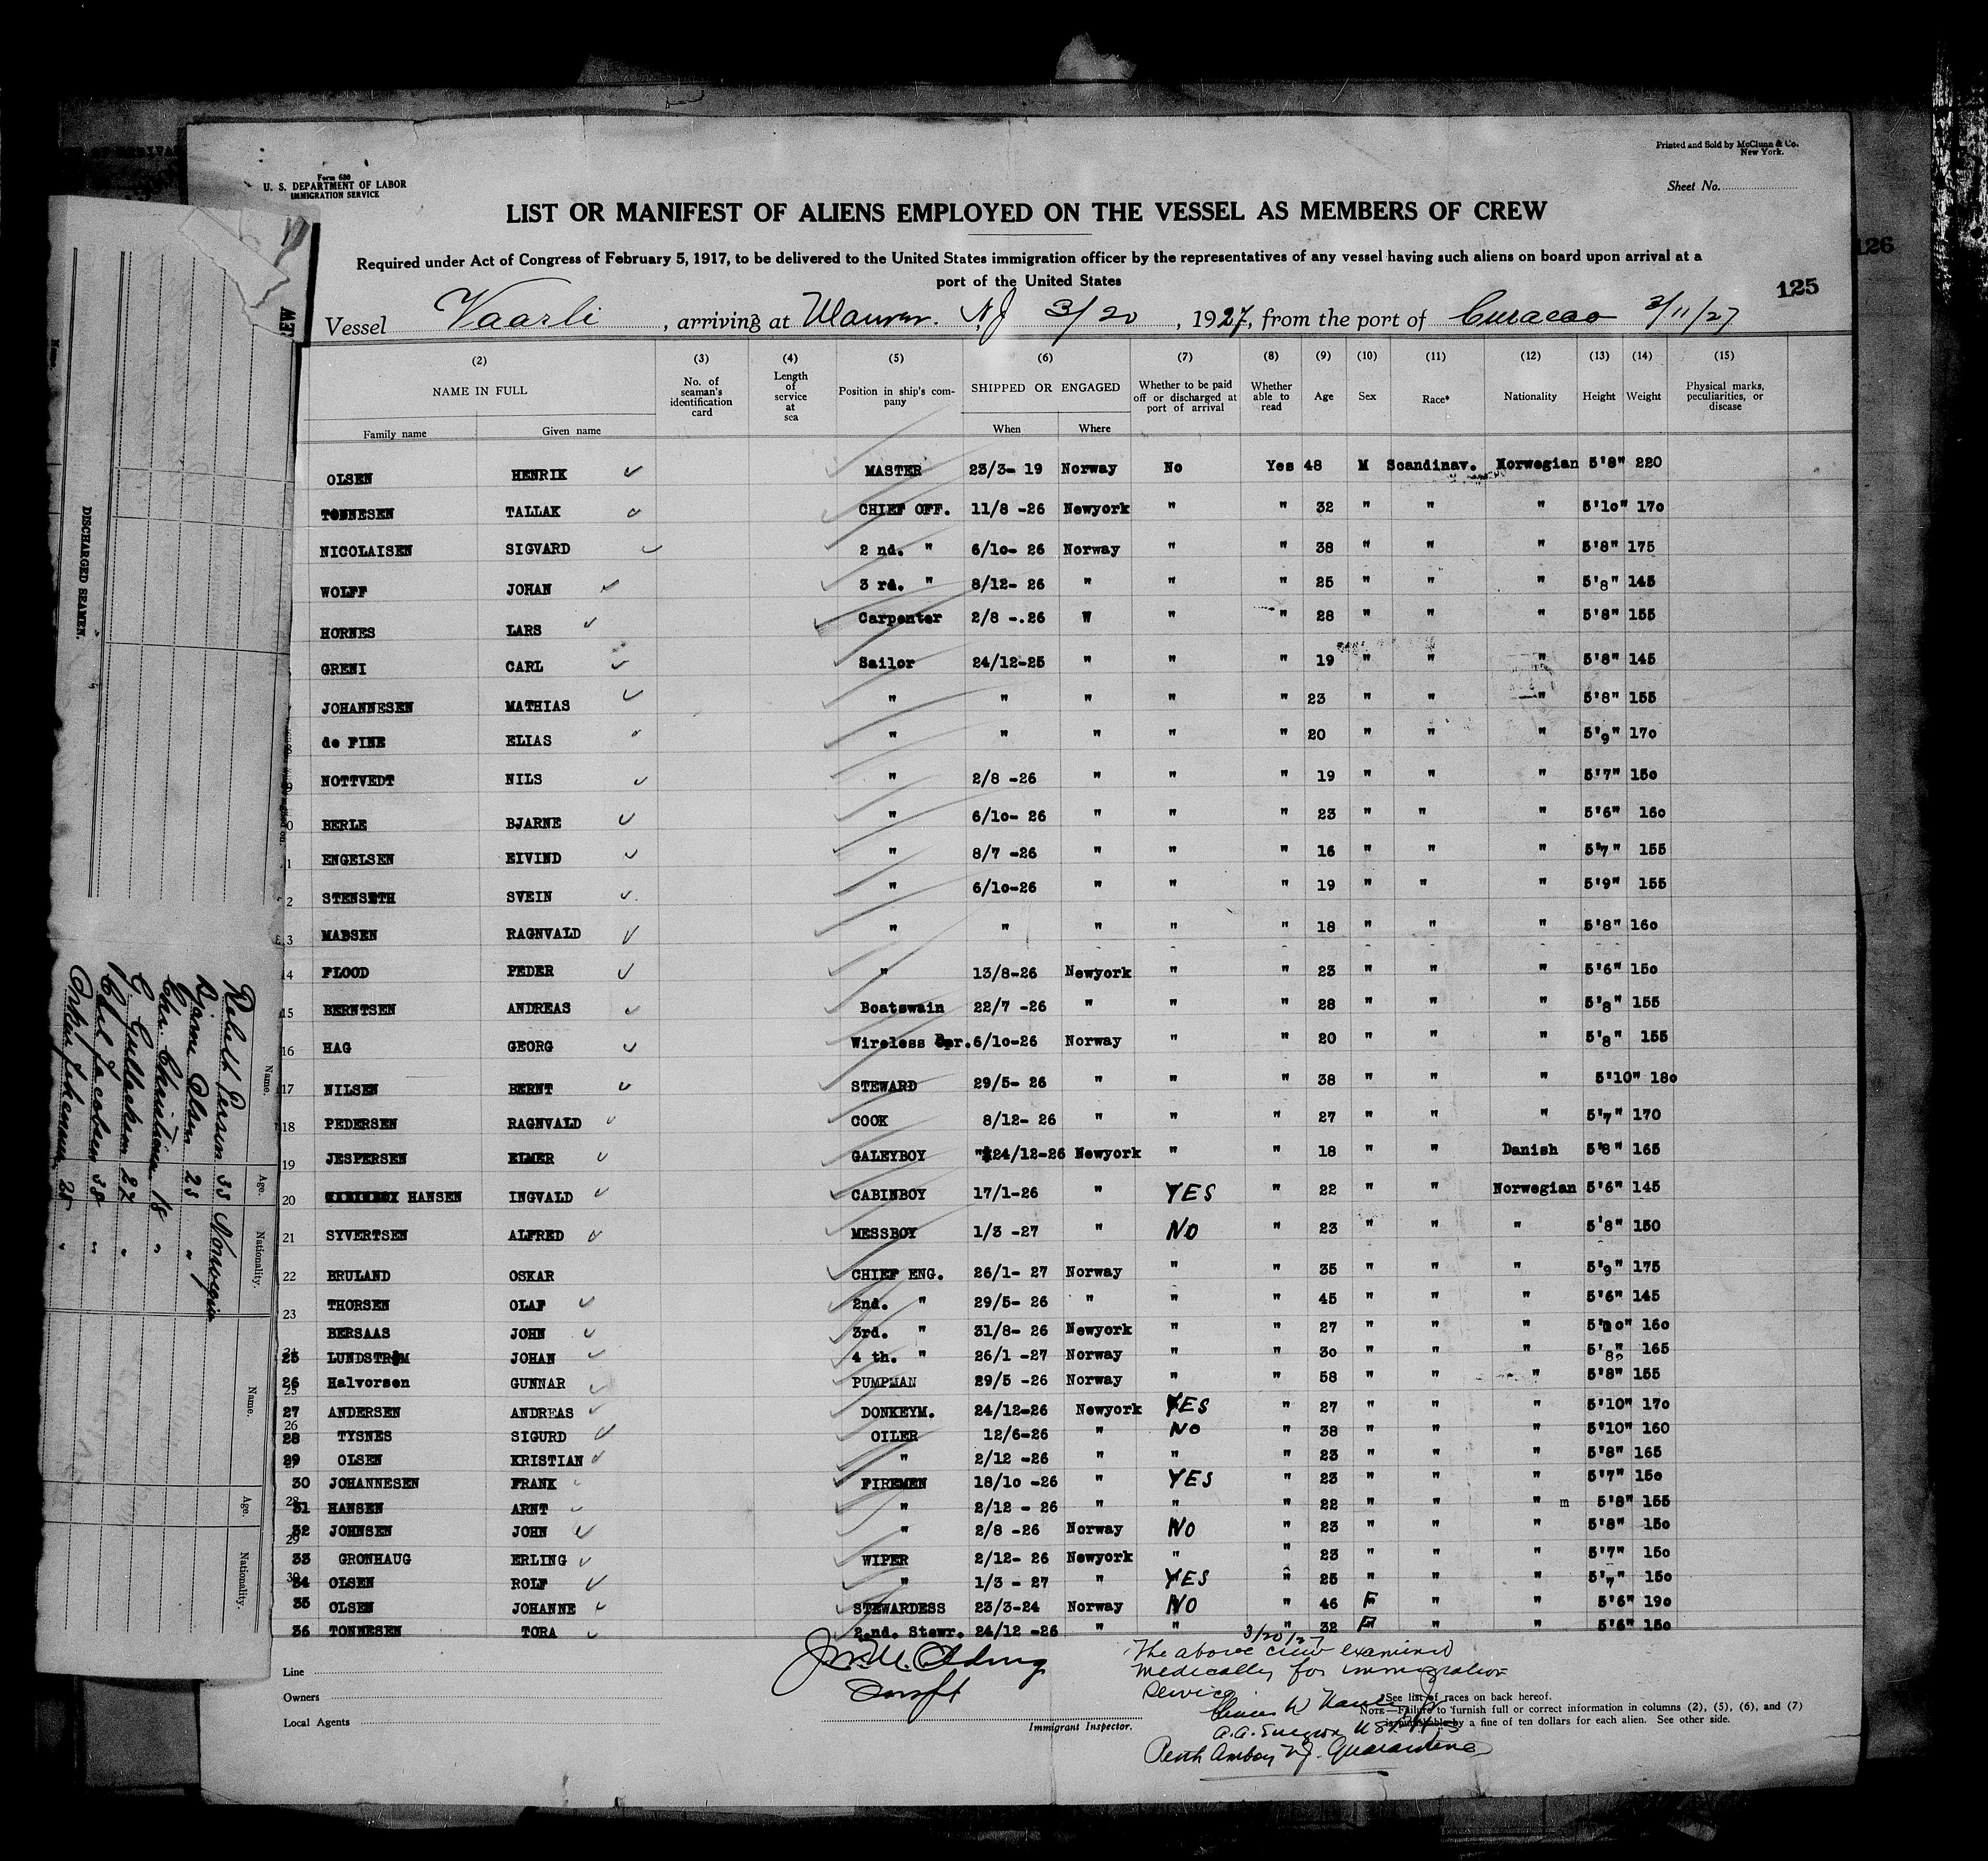 Form 680
U. S. DEPARTMENT OF LABOR
IMMIGRATION SERVICE
Printed and Sold by McClunn & Co.
New York.
Sheet No.
LIST OR MANIFEST OF ALIENS EMPLOYED ON THE VESSEL AS MEMBERS OF CREW
Required under Act of Congress of February 5, 1917, to be delivered to the United States immigration officer by the representatives of any vessel having such aliens on board upon arrival at a
port of the United States
125
126
Vessel Vaarli, arriving at N.J 3/20, 1927, from the port of Curacao 3/11/27
(2) (3) (4) (5) (6) (7) (8) (9) (10) (11) (12) (13) (14) (15)
NAME IN FULL No. of seaman's identification card Length of service at sea Position in ship's company SHIPPED OR ENGAGED Whether to be paid off or discharged at port of arrival Whether able to read Age Sex Race* Nationality Height Weight Physical marks, peculiarities, or disease
Family name Given name When Where
OLSEN HENRIK MASTER 23/3- 19 Norway No Yes 48 M Scandinav. Norwegian 5'8" 220
TONNESEN TALLAK CHIEF OFF. 11/8 -26 Newyork " " 32 " " " 5'10" 170
NICOLAISEN SIGVARD 2 nd. " 6/10- 26 Norway " " 38 " " " 5'8" 175
WOLFF JOHAN 3 rd. " 8/12- 26 " " " 25 " " " 5'8" 145
HORNES LARS Carpenter 2/8 -.26 W " " 28 " " " 5'8" 155
GRENI CARL Sailor 24/12-25 " " " 19 " " " 5'8" 145
JOHANNESEN MATHIAS " " " " " 23 " " " 5'8" 155
de FINE ELIAS " " " " " 20 " " " 5'9" 170
NOTTVEDT NILS " 2/8 -26 " " " 19 " " " 5'7" 150
BERLE BJARNE " 6/10- 26 " " " 23 " " " 5'6" 160
ENGELSEN EIVIND " 8/7 -26 " " " 16 " " " 5'7" 155
STENSETH SVEIN " 6/10-26 " " " 19 " " " 5'9" 155
MADSEN RAGNVALD " " " " " 18 " " " 5'8" 160
14 FLOOD PEDER " 13/8-26 Newyork " " 23 " " " 5'6" 150
15 BERNTSEN ANDREAS Boatswain 22/7 -26 " " " 28 " " " 5'8" 155
16 HAG GEORG Wireless Opr. 6/10-26 Norway " " 20 " " " 5'8" 155
17 NILSEN BERNT STEWARD 29/5- 26 " " " 38 " " " 5'10" 180
18 PEDERSEN RAGNVALD COOK 8/12- 26 " " " 27 " " " 5'7" 170
19 JESPERSEN ELMER GALEYBOY 24/12-26 Newyork " " 18 " " Danish 5'8" 165
20 HANSEN INGVALD CABINBOY 17/1-26 " YES " 22 " " Norwegian 5'6" 145
21 SYVERTSEN ALFRED MESSBOY 1/3 -27 " NO " 23 " " " 5'8" 150
22 BRULAND OSKAR CHIEF ENG. 26/1- 27 Norway " " 35 " " " 5'9" 175
23 THORSEN OLAF 2nd. " 29/5- 26 " " " 45 " " " 5'6" 145
BERSAAS JOHN 3rd. " 31/8- 26 Newyork " " 27 " " " 160
25 LUNDSTRØM JOHAN 4 th. " 26/1 -27 Norway " " 30 " " " 5'8" 165
26 Halvorsen GUNNAR PUMPMAN 29/5 -26 Norway " " 58 " " " 5'8" 155
27 ANDERSEN ANDREAS DONKEYM. 24/12-26 Newyork YES " 27 " " " 5'10" 170
28 TYSNES SIGURD OILER 12/6-26 " NO " 38 " " " 5'10" 160
29 OLSEN KRISTIAN " 2/12 -26 " " " 23 " " " 5'8" 165
30 JOHANNESEN FRANK FIREMEN 18/10 -26 " YES " 23 " " " 5'7" 150
31 HANSEN ARNT " 2/12 - 26 " " " 22 " " " m 5'8" 155
32 JOHNSEN JOHN " 2/8 -26 Norway NO " 23 " " " 5'8" 150
33 GRONHAUG ERLING WIPER 2/12- 26 Newyork " " 23 " " " 5'7" 150
34 OLSEN ROLF " 1/3 - 27 " YES " 25 " " " 5'7" 150
35 OLSEN JOHANNE STEWARDESS 23/3-24 Norway NO " 46 F " " 5'6" 190
36 TONNESEN TORA 2.nd. Stewr. 24/12 -26 " " " 32 F " " 5'6" 150
3/20/27
The above crew examined
medically for immigration
Service
A.A. Surgeon U.S.P.H.S
Perth Amboy N.J. Quarantine
Line
Owners
Local Agents
Immigrant Inspector.
*See list of races on back hereof.
NOTE—Failure to furnish full or correct information in columns (2), (5), (6), and (7)
is punishable by a fine of ten dollars for each alien. See other side.
DISCHARGED SEAMEN.
Name. Age. Nationality. Name. Age. Nationality.
Person 33 Norwegian
Bjarne Olsen 23 "
Chr. Christiansen 18 "
27 "
Jacobsen 38 "
Johannesen 28 "